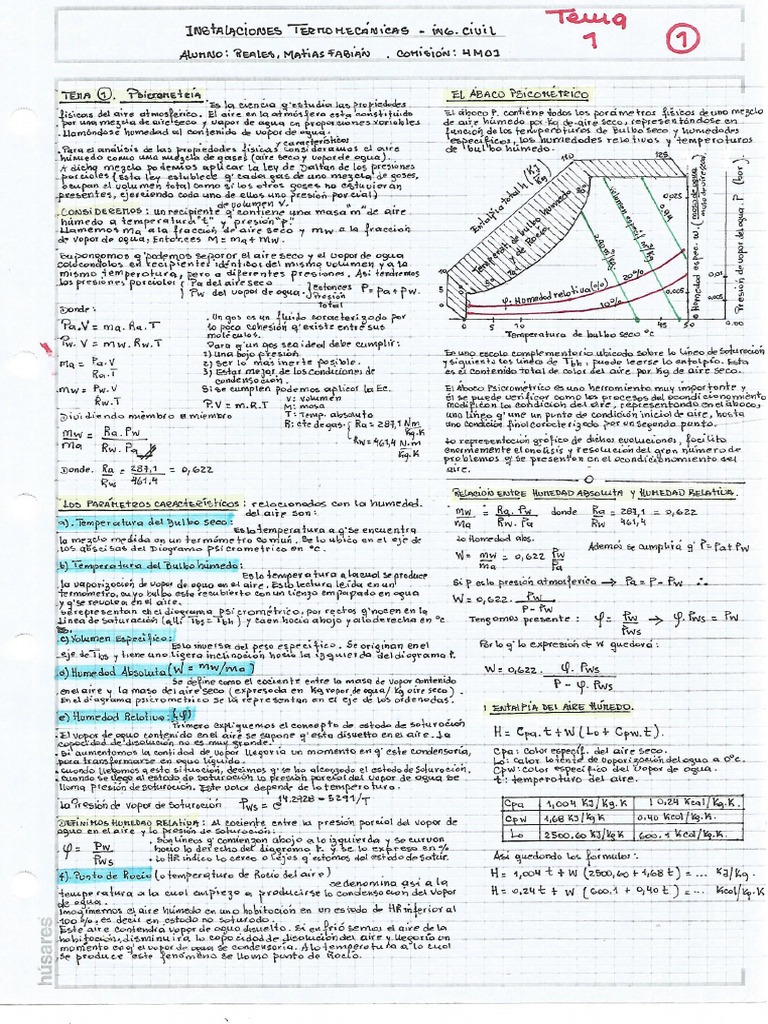 INSTALACIONES TERMOMECÁNICAS - ING. CIVIL
ALUMNO: REALES, MATIAS FABIÁN . COMISIÓN: 4M01
Tema
1
1
TEMA 1. PSICROMETRÍA
Es la ciencia q' estudia las propiedades
físicas del aire atmosférico. El aire en la atmósfera esta constituido
por una mezcla de aire seco y vapor de agua en proporciones variables
Llamándose humedad al contenido de vapor de agua.
y características
Para el análisis de las propiedades físicas consideramos el aire
húmedo como una mezcla de gases (aire seco y vapor de agua).
A dicha mezcla podemos aplicar la ley de Dalton de las presiones
parciales (Esta ley establece q' cada gas de una mezcla de gases,
ocupan el volumen total como si los otros gases no estuvieran
presentes, ejerciendo cada uno de ellos una presión parcial)
de volumen V.
CONSIDEREMOS: un recipiente q' contiene una masa m de aire
húmedo a temperatura "t" y presión "p".
Llamemos ma a la fracción de aire seco y mw a la fracción
de vapor de agua, entonces M = ma + mw.
Supongamos q' podemos separar el aire seco y el vapor de agua
colocándolos en recipiente idénticos del mismo volumen y a la
misma temperatura, pero a diferentes presiones. Así tendremos
las presiones parciales { Pa del aire seco
Pw del vapor de agua . } entonces P = pa + pw.
Presión
Total
Donde:
Pa.V = ma. Ra. T
Pw. V = mw. Rw. T
ma = Pa. V / Ra. T
mw = Pw. V / Rw. T
. Un gas es un fluido caracterizado por
la poca cohesión q' existe entre sus
moléculas.
Para q' un gas sea ideal debe cumplir:
1) una baja presión
2) ser lo más inerte posible.
3) Estar mejor de las condiciones de
condensación.
Si se cumplen podemos aplicar la Ec.
P.V = m.R.T
V: volumen
M: masa
T: Temp. absauto
R: cte de gas: { Ra = 287,1 Nm / Kg.K
Rw = 461,4 N.m / Kg.K
Dividiendo miembro a miembro
mw / ma = Ra. Pw / Rw. Pa
Donde. Ra / Rw = 287,1 / 461,4 = 0,622
LOS PARÁMETROS CARACTERÍSTICOS: relacionados con la humedad
del aire son:
a). Temperatura del Bulbo seco:
Es la temperatura a q' se encuentra
la mezcla medida en un termómetro común. Se lo ubica en el eje de
las abscisas del Diagrama psicrometrico en °C.
b) Temperatura del Bulbo húmedo:
Es la temperatura a la cual se produce
la vaporización de vapor de agua en el aire. Es la lectura leída en un
termómetro, cuyo bulbo este recubierto con un lienzo empapado en agua
y q' se revolea en el aire.
Se representan en el diagrama psicrométrico, por rectas q' nacen en la
Línea de saturación (allí Tbs = Tbh) y caen hacia abajo y a la derecha en °C
c) Volumen Específico:
Es la inversa del peso específico. Se originan en el
eje de Tbs y tiene una ligera inclinación hacia la izquierda del diagrama P.
d) Humedad Absoluta (W = mw/ma)
Se define como el cociente entre la masa de vapor contenido
en el aire y la masa del aire seco (expresada en Kg vapor de agua / Kg aire seco).
En el diagrama psicrometrico se la representan en el eje de las ordenadas.
e) Humedad Relativa: (φ)
Primero expliquemos el concepto de estado de saturación
. El vapor de agua contenido en el aire se supone q' esta disuelto en el aire. La
capacidad de disolución no es muy grande.
. Si aumentamos la cantidad de vapor llegaría un momento en q' este condensaría,
para transformarse en agua líquida.
. cuando llegamos a esta situación, decimos q' se ha alcanzado el estado de saturación.
. cuando se llega al estado de saturación la presión parcial del vapor de agua se
llama presión de saturación. Este valor depende de la temperatura.
La Presión de Vapor de Saturación Pws = e^14.2928 - 5291/T
DEFINIMOS HUMEDAD RELATIVA: Al cociente entre la presión parcial del vapor de
agua en el aire y la presión de saturación:
φ = Pw / Pws
. Son líneas q' comienzan abajo a la izquierda y se curvan
hacia la derecha del diagrama P. y se lo expresa en %
. La HR indica lo cerca o lejos q' estamos del estado de satur.
f). Punto de Rocío (o temperatura de Rocío del aire)
se denomina así a la
temperatura a la cual empieza a producirse la condensación del vapor
de agua.
Imaginemos el aire húmedo en una habitación en un estado de HR inferior al
100 %, es decir en estado no saturado.
Este aire contendrá vapor de agua disuelto. Si enfriásemos el aire de la
habitación, disminuiría la capacidad de disolución del aire y llegaría un
momento en q' el vapor de agua se condensaría. A la temperatura a la cual
se produce este fenómeno se llama punto de Rocío.
húsares
EL ABACO PSICOMÉTRICO
El ábaco P. contiene todos los parámetros físicos de una mezcla
de aire húmedo por Kg de aire seco, representándose en
función de las temperaturas de Bulbo seco y humedades
específicas, las humedades relativas y temperaturas
de bulbo húmedo.
Entalpía total h (KJ/Kg)
110
125
Temperat. de bulbo húmedo
y de Rocío.
Volumen específ. m³/Kg
0.94
20%
10%
φ: Humedad relativa (%)
0
5
10
45
50
Temperatura de bulbo seco °C
0,025
0,01
0,005
0.00
Humedad espec. w. (masa de agua / masa de aire seco)
Presión de vapor del agua. P (bar).
Es una escala complementaria ubicada sobre la línea de saturación
y siguiente las líneas de Tbh, puede leerse la entalpía. Esta
es el contenido total de calor del aire por Kg de aire seco.
El Ábaco Psicrométrico es una herramienta muy importante y
él se puede verificar como los procesos del acondicionamiento
modifican la condición del aire, representando en el ábaco,
una línea q' une un punto de condición inicial de aire, hasta
una condición final caracterizada por un segundo punto.
La representación gráfica de dichas evoluciones, facilita
enormemente el análisis y resolución del gran número de
problemas q' se presentan en el acondicionamiento del
aire.
RELACIÓN ENTRE HUMEDAD ABSOLUTA Y HUMEDAD RELATIVA.
mw / ma = Ra. Pw / Rw. Pa donde Ra / Rw = 287,1 / 461,4 = 0,622
La Humedad abs.
Además se cumplirá q' P = Pa + Pw
W = mw / ma = 0,622 Pw / Pa
Si P es la presión atmosférica → Pa = P - Pw ∴
W = 0,622. Pw / P - Pw
Tengamos presente : φ = Pw / Pws → φ. Pws = Pw
Por lo q' la expresión de W quedará:
W = 0,622. φ. Pws / P - φ. Pws
ENTALPÍA DEL AIRE HÚMEDO.
H = Cpa. t + W (Lo + Cpw. t).
Cpa: calor específ. del aire seco.
Lo: calor latente de vaporización del agua a 0°c.
Cpw: calor específico del vapor de agua.
t: temperatura del aire.
Cpa | 1,004 KJ/Kg.K | 0.24 Kcal/Kg.K.
Cpw | 1,68 KJ/Kg.K | 0.40 Kcal/Kg.K.
Lo | 2500,60 KJ/Kg.K | 600.1 Kcal/Kg.K
Así quedando las formulas:
H = 1,004 t + W (2500,60 + 1,68 t) = ... KJ/Kg.
H = 0.24 t + W (600.1 + 0,40 t) = ... Kcal/Kg.K